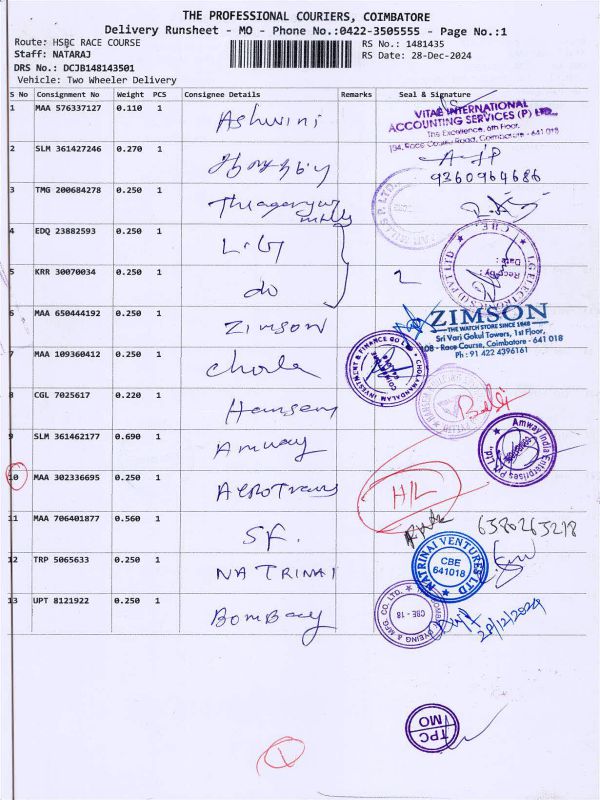 THE PROFESSIONAL COURIERS, COIMBATORE
Delivery Runsheet - MO - Phone No.:0422-3505555 - Page No.:1
Route: HSBC RACE COURSE
RS No.: 1481435
Staff: NATARAJ
RS Date: 28-Dec-2024
DRS No.: DCJB148143501
Vehicle: Two Wheeler Delivery
S No Consignment No Weight PCS Consignee Details Remarks Seal & Signature
1 MAA 576337127 0.110 1 Ashwini
VITAE INTERNATIONAL
ACCOUNTING SERVICES (P) LTD.,
The Excellence, 6th Floor,
134, Race Course Road, Coimbatore - 641 018
2 SLM 361427246 0.270 1
9360964686
3 TMG 200684278 0.250 1 Mills
4 EDQ 23882593 0.250 1 L.G
C.B.E.
LG ELECTRONICS PVT LTD
Date :
5 KRR 30070034 0.250 1 do 2
6 MAA 650444192 0.250 1 Zimson
ZIMSON
THE WATCH STORE SINCE 1948
Sri Vari Gokul Towers, 1st Floor,
108 - Race Course, Coimbatore - 641 018
Ph : 91 422 4396161
7 MAA 109360412 0.250 1 Chola
CHOLAMANDALAM INVESTMENT & FINANCE CO LTD
8 CGL 7025617 0.220 1
9 SLM 361462177 0.690 1 Amway
Amway India Enterprises Pvt. Ltd.
10 MAA 302336695 0.250 1 Aerotrans H/L
11 MAA 706401877 0.560 1 SF. 6380263218
12 TRP 5065633 0.250 1 NATRINAI
NATRINAI VENTURES LTD
CBE
641018
13 UPT 8121922 0.250 1 Bombay
BOMBAY DYEING & MFG. CO. LTD.
CBE - 18
28/12/2024
TPC
MO
1